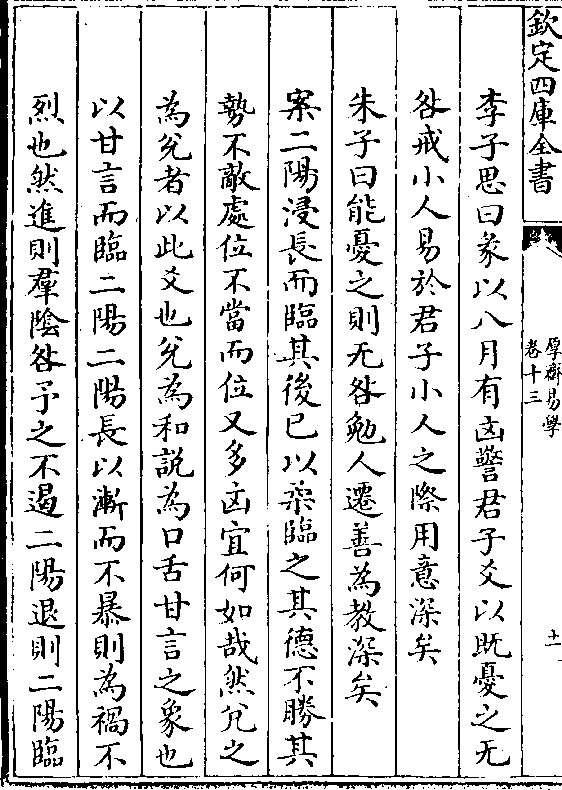 欽定四庫全書
厚齋易學
卷十三
十一
李子思曰彖以八月有凶警君子爻以既憂之无
咎戒小人易於君子小人之際用意深矣
朱子曰能憂之則无咎勉人遷善為教深矣
案二陽浸長而臨其後已以柔臨之其德不勝其
勢不敵處位不當而位又多凶宜何如哉然兊之
為兊者以此爻也兊為和說為口舌甘言之象也
以甘言而臨二陽二陽長以漸而不暴則為禍不
烈也然進則羣陰咎予之不遏二陽退則二陽臨